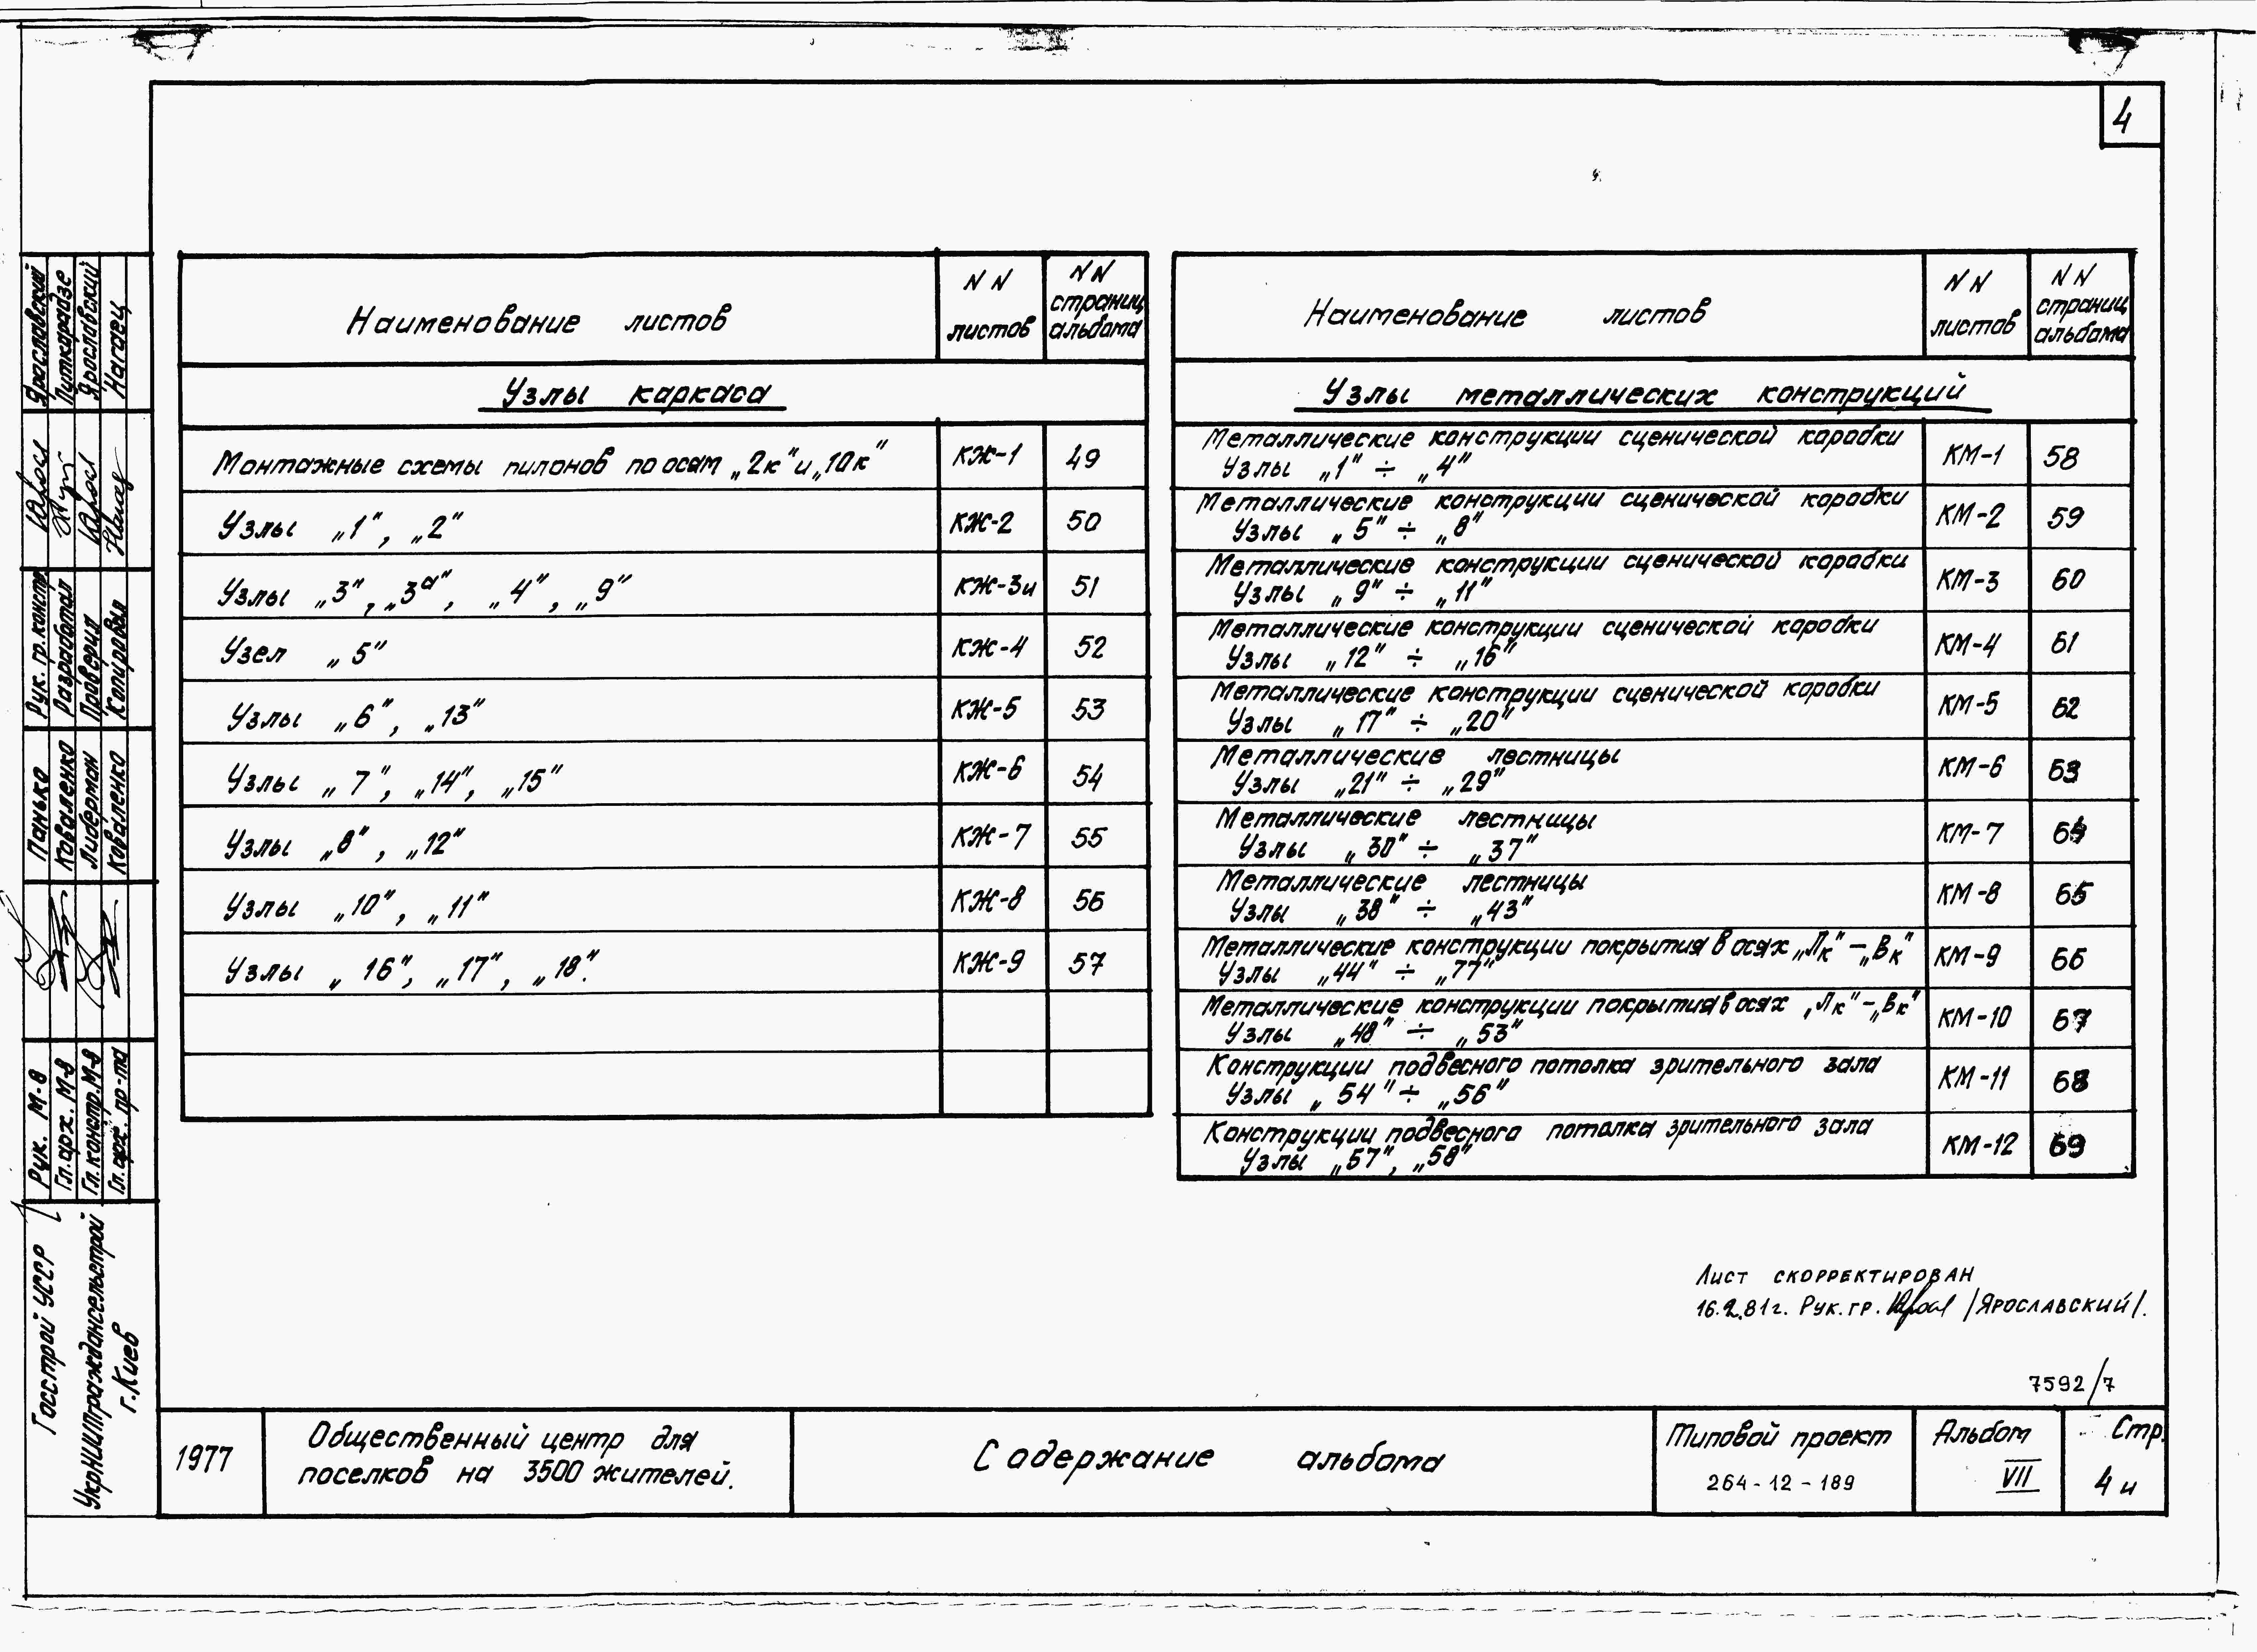 4
Наименование листов
NN листов
NN страниц альбома
Узлы каркаса
Монтажные схемы пилонов по осям „2к" и „10к" КЖ-1 49
Узлы „1", „2" КЖ-2 50
Узлы „3", „3а", „4", „9" КЖ-3и 51
Узел „5" КЖ-4 52
Узлы „6", „13" КЖ-5 53
Узлы „7", „14", „15" КЖ-6 54
Узлы „8", „12" КЖ-7 55
Узлы „10", „11" КЖ-8 56
Узлы „16", „17", „18". КЖ-9 57
Наименование листов
NN листов
NN страниц альбома
Узлы металлических конструкций
Металлические конструкции сценической коробки
Узлы „1" ÷ „4" КМ-1 58
Металлические конструкции сценической коробки
Узлы „5" ÷ „8" КМ-2 59
Металлические конструкции сценической коробки
Узлы „9" ÷ „11" КМ-3 60
Металлические конструкции сценической коробки
Узлы „12" ÷ „16" КМ-4 61
Металлические конструкции сценической коробки
Узлы „17" ÷ „20" КМ-5 62
Металлические лестницы
Узлы „21" ÷ „29" КМ-6 63
Металлические лестницы
Узлы „30" ÷ „37" КМ-7 64
Металлические лестницы
Узлы „38" ÷ „43" КМ-8 65
Металлические конструкции покрытия в осях „Лк" – „Вк"
Узлы „44" ÷ „77" КМ-9 66
Металлические конструкции покрытия в осях „Лк" – „Вк"
Узлы „48" ÷ „53" КМ-10 67
Конструкции подвесного потолка зрительного зала
Узлы „54" ÷ „56" КМ-11 68
Конструкции подвесного потолка зрительного зала
Узлы „57", „58" КМ-12 69
Лист скорректирован
16.2.81г. Рук. гр. /Ярославский/.
7592/7
1977
Общественный центр для
поселков на 3500 жителей.
Содержание альбома
Типовой проект
264-12-189
Альбом
VII
Стр.
4и
Госстрой УССР
УкрНИИПграждансельстрой
г. Киев
Рук. М-8 Панько
Гл. арх. М-8 Коваленко
Гл. констр. М-8 Либерман
Гл. арх. пр-та Коваленко
Рук. гр. констр. Ярославский
Разработал Путкарадзе
Проверил Ярославский
Копировал Нагаец